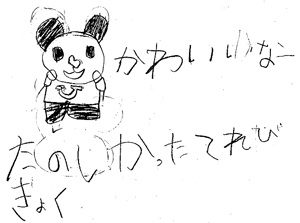 かわいいなー
たのしかったてれび
きょく